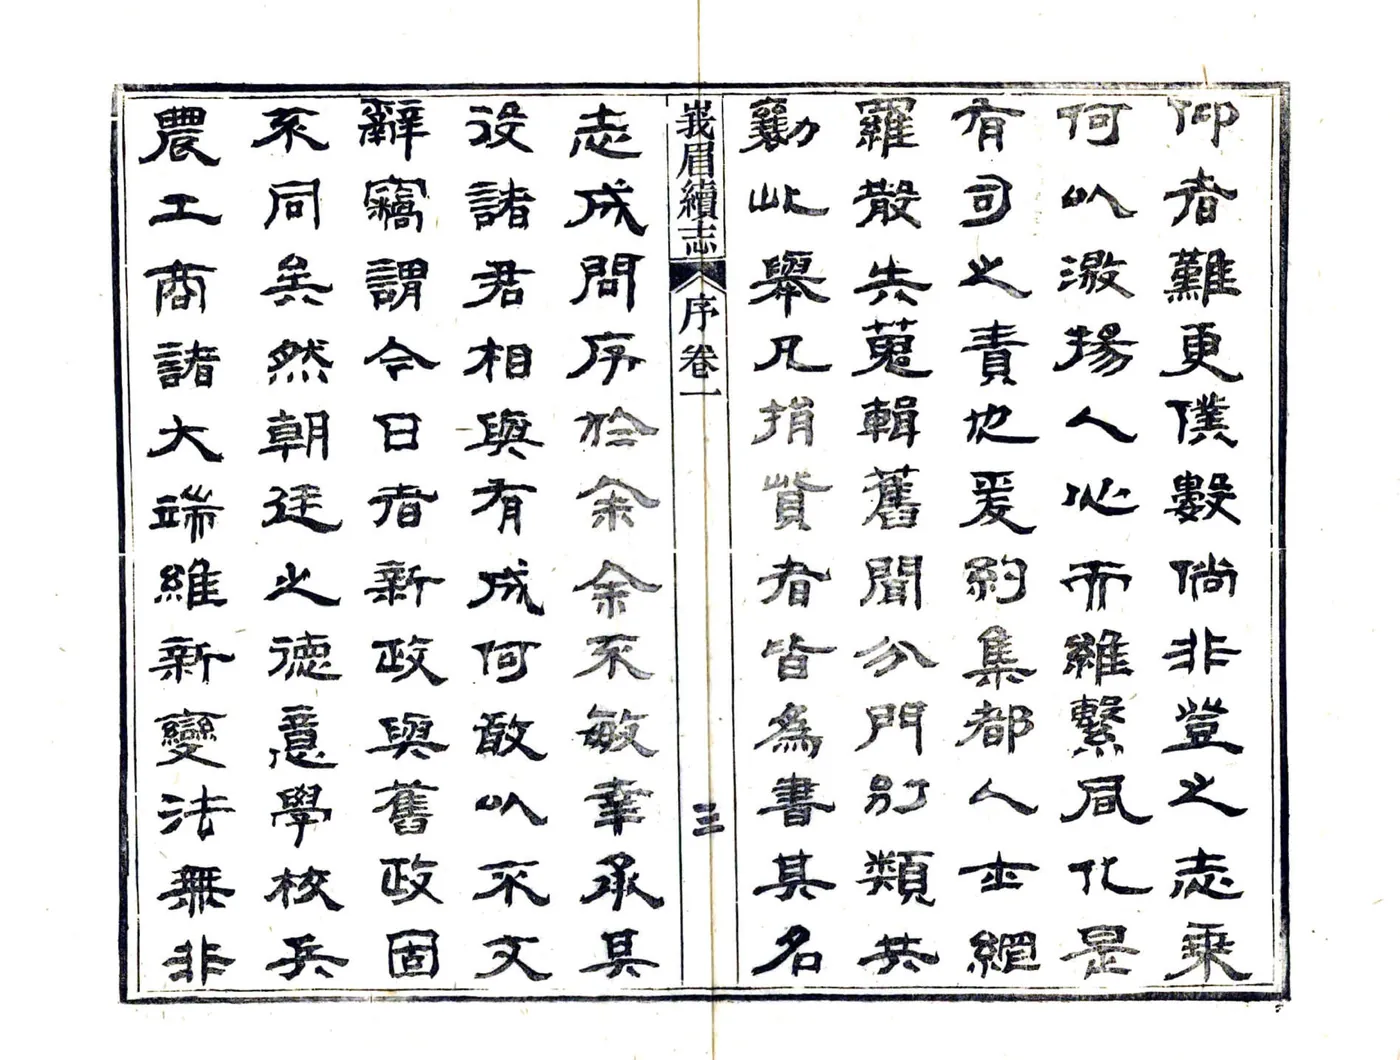 仰者難更僕數倘非登之志乘
何以激揚人心而維繫風化是
有司之責也爰約集都人士網
羅散失蒐輯舊聞分門別類共
勷此舉凡捐貲者皆為書其名
峩眉續志 序 卷一 三
志成問序於余余不敏幸承其
役諸君相與有成何敢以不文
辭竊謂今日者新政與舊政固
不同矣然朝廷之德意學校兵
農工商諸大端維新變法無非